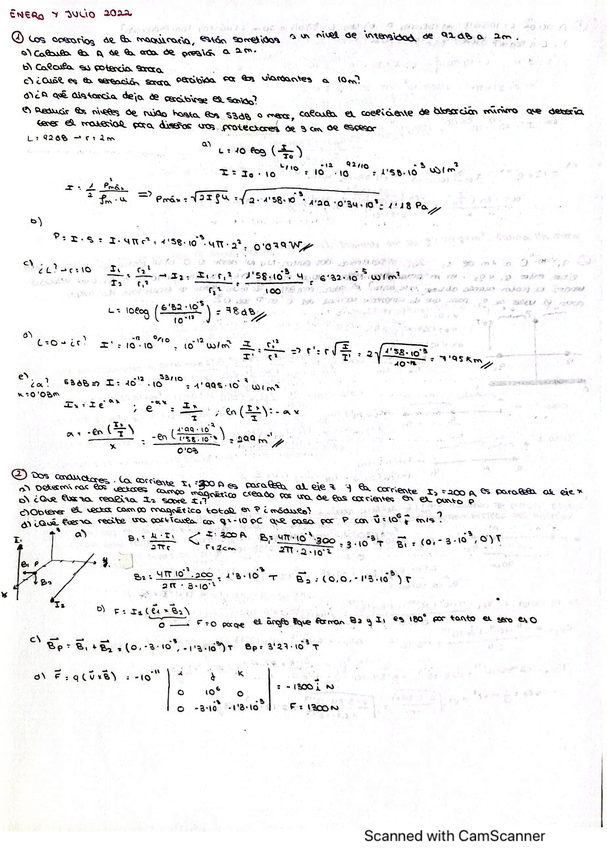 ENERO Y JULIO 2022
① Los operarios de la maquinaria, están sometidos a un nivel de intensidad de 92dB a 2m.
a) Calcula la A de la onda de presión a 2m.
b) Calcula su potencia sonora
c) ¿Cuál es la sensación sonora percibida por los viandantes a 10m?
d) ¿A qué distancia deja de percibirse el sonido?
e) Reducir los niveles de ruido hasta los 53dB o menor, calcula el coeficiente de absorción mínimo que debería
tener el material para diseñar unos protectores de 3 cm de espesor
L = 92dB → r = 2m
a) L = 10 log (I/I0)
I = I0 · 10^L/10 = 10^-12 · 10^92/10 = 1'58 · 10^-3 W/m²
I = 1/2 Pmáx²/ρm · u => Pmáx = √2Iρu = √2 · 1'58 · 10^-3 · 1'20 · 0'34 · 10^3 = 1'18 Pa
b)
P = I · S = I · 4πr² = 1'58 · 10^-3 · 4π · 2² = 0'079 W
c) ¿L? → r = 10 I1/I2 = r2²/r1² → I2 = I1 · r1²/r2² = 1'58 · 10^-3 · 4/100 = 6'32 · 10^-5 W/m²
L = 10 log (6'32 · 10^-5/10^-12) = 78 dB
d) L = 0 → ¿r? I' = 10^-12 · 10^0/10 = 10^-12 W/m² I/I' = r'²/r² => r' = r√I/I' = 2√1'58 · 10^-3/10^-12 = 7'95 km
e) ¿a? 53dB => I = 10^-12 · 10^53/10 = 1'995 · 10^-7 W/m²
x = 0'03m
Ix = I e^-ax ; e^-ax = Ix/I ; ln (Ix/I) = -ax
a = -ln(Ix/I)/x = -ln(1'99 · 10^-7/1'58 · 10^-3)/0'03 = 299 m^-1
② Dos conductores. La corriente I1 = 300 A es paralela al eje z y la corriente I2 = 200 A es paralela al eje x
a) Determinar los vectores campo magnético creado por una de las corrientes en el punto P
b) ¿Qué fuerza realiza I2 sobre I1?
c) Obtener el vector campo magnético total en P ¿módulo?
d) ¿Qué fuerza recibe una partícula con q = -10 pC que pasa por P con v = 10^6 j m/s?
I1 z a) B1 = μ · I1/2πr I = 300 A r = 2cm B1 = 4π · 10^-7 · 300/2π · 2 · 10^-2 = 3 · 10^-3 T B1 = (0, -3 · 10^-3, 0) T
B1 P y
B2
x I2
B2 = 4π 10^-7 · 200/2π · 3 · 10^-2 = 1'3 · 10^-3 T B2 = (0, 0, -1'3 · 10^-3) T
b) F = I1 (l1 × B2)
0 F = 0 porque el ángulo que forman B2 y I1 es 180° por tanto el seno es 0
c) BP = B1 + B2 = (0, -3 · 10^-3, -1'3 · 10^-3) T BP = 3'27 · 10^-3 T
d) F = q (v × B) = -10^-11
i j k
0 10^6 0
0 -3·10^-3 -1'3·10^-3
= -1300 i N
F = 1300 N
Scanned with CamScanner